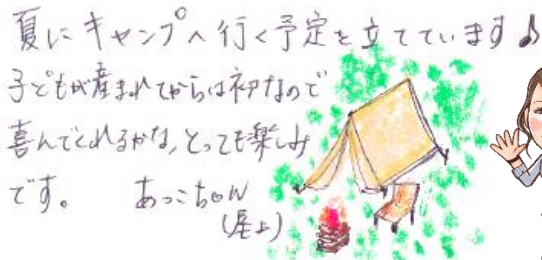 夏にキャンプへ行く予定を立てています♪
子どもが産まれてからは初なので
喜んでくれるかな、とっても楽しみ
です。 あっこちゃん
(屋上)